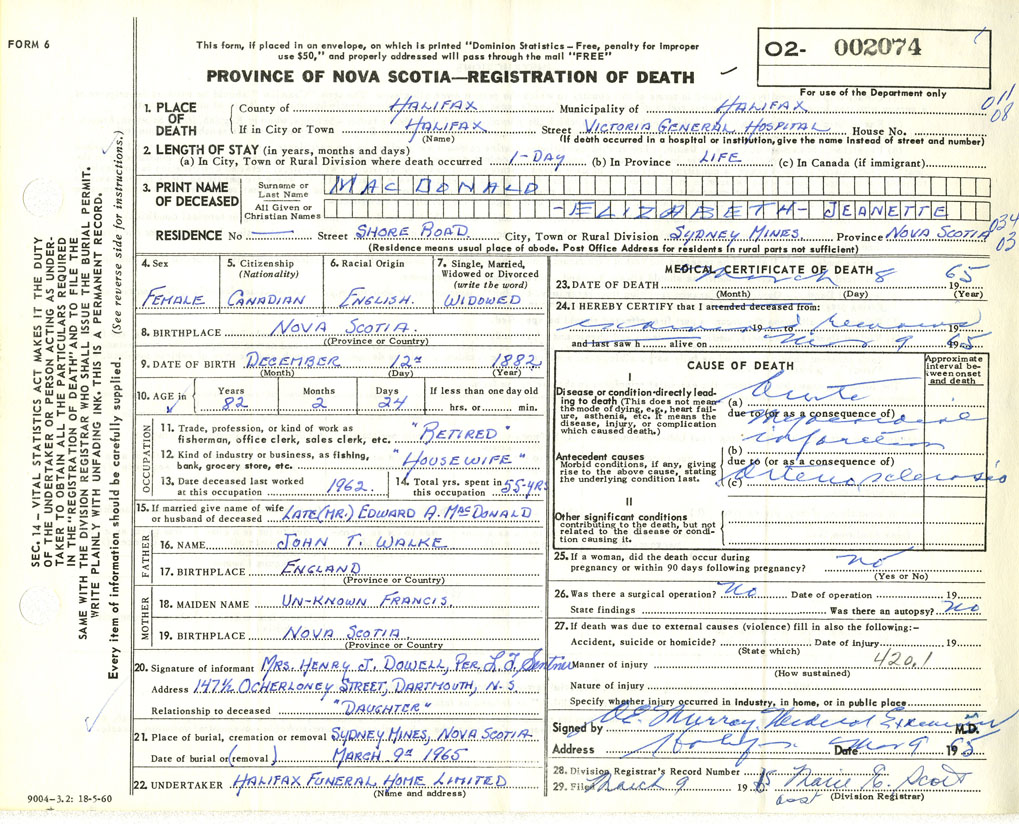 FORM 6
This form, if placed in an envelope, on which is printed "Dominion Statistics – Free, penalty for improper
use $50," and properly addressed will pass through the mail "FREE"
PROVINCE OF NOVA SCOTIA—REGISTRATION OF DEATH
O2- 002074
For use of the Department only
011
08
1. PLACE OF DEATH
County of HALIFAX Municipality of HALIFAX
If in City or Town HALIFAX Street VICTORIA GENERAL HOSPITAL House No.
(Name) (If death occurred in a hospital or institution, give the name instead of street and number)
2. LENGTH OF STAY (in years, months and days)
(a) In City, Town or Rural Division where death occurred 1-DAY (b) In Province LIFE (c) In Canada (if immigrant)
3. PRINT NAME OF DECEASED
Surname or Last Name MAC DONALD
All Given or Christian Names -ELIZABETH- JEANETTE
034
03
RESIDENCE No — Street SHORE ROAD City, Town or Rural Division SYDNEY MINES Province NOVA SCOTIA
(Residence means usual place of abode. Post Office Address for residents in rural parts not sufficient)
4. Sex FEMALE
5. Citizenship (Nationality) CANADIAN
6. Racial Origin ENGLISH.
7. Single, Married, Widowed or Divorced (write the word) WIDOWED
8. BIRTHPLACE NOVA SCOTIA.
(Province or Country)
9. DATE OF BIRTH DECEMBER 12th 1882
(Month) (Day) (Year)
10. AGE in Years 82 Months 2 Days 24 If less than one day old hrs. or min.
OCCUPATION
11. Trade, profession, or kind of work as fisherman, office clerk, sales clerk, etc. "RETIRED"
12. Kind of industry or business, as fishing, bank, grocery store, etc. "HOUSEWIFE"
13. Date deceased last worked at this occupation 1962. 14. Total yrs. spent in this occupation 55-YRS
15. If married give name of wife or husband of deceased LATE (MR.) EDWARD A. MACDONALD
FATHER
16. NAME JOHN T. WALKE
17. BIRTHPLACE ENGLAND
(Province or Country)
MOTHER
18. MAIDEN NAME UN-KNOWN FRANCIS.
19. BIRTHPLACE NOVA SCOTIA
(Province or Country)
20. Signature of informant MRS. HENRY J. DOWELL, PER L.J.
Address 147½ OCHERLONEY STREET, DARTMOUTH, N-S.
Relationship to deceased "DAUGHTER"
21. Place of burial, cremation or removal SYDNEY MINES, NOVA SCOTIA
Date of burial or (removal) MARCH 9th 1965
22. UNDERTAKER HALIFAX FUNERAL HOME LIMITED
(Name and address)
MEDICAL CERTIFICATE OF DEATH
23. DATE OF DEATH March 8 1965
(Month) (Day) (Year)
24. I HEREBY CERTIFY that I attended deceased from:
examined 19 to removed 19
and last saw h alive on Mar 9 1965
CAUSE OF DEATH
Approximate interval between onset and death
I
Disease or condition directly leading to death (This does not mean the mode of dying, e.g., heart failure, asthenia, etc. It means the disease, injury, or complication which caused death.)
(a) Acute
due to (or as a consequence of) Myocardial
infarction
(b)
Antecedent causes
Morbid conditions, if any, giving rise to the above cause, stating the underlying condition last.
due to (or as a consequence of)
(c) Arteriosclerosis
II
Other significant conditions
contributing to the death, but not related to the disease or condition causing it.
25. If a woman, did the death occur during pregnancy or within 90 days following pregnancy? No
(Yes or No)
26. Was there a surgical operation? No Date of operation 19
State findings Was there an autopsy? No
27. If death was due to external causes (violence) fill in also the following:-
Accident, suicide or homicide? Date of injury 19
(State which)
Manner of injury 420.1
(How sustained)
Nature of injury
Specify whether injury occurred in Industry, in home, or in public place
Signed by Murray Medical Examiner M.D.
Address Date Mar 9 1965
28. Division Registrar's Record Number
29. Filed March 9 19 Marie E. Scott
asst (Division Registrar)
9004-3.2: 18-5-60
SEC. 14 – VITAL STATISTICS ACT MAKES IT THE DUTY
OF THE UNDERTAKER OR PERSON ACTING AS UNDER-
TAKER TO OBTAIN ALL THE PARTICULARS REQUIRED
IN THE "REGISTRATION OF DEATH" AND TO FILE THE
SAME WITH THE DIVISION REGISTRAR WHO SHALL ISSUE THE BURIAL PERMIT.
WRITE PLAINLY WITH UNFADING INK. THIS IS A PERMANENT RECORD.
Every item of information should be carefully supplied. (See reverse side for instructions.)